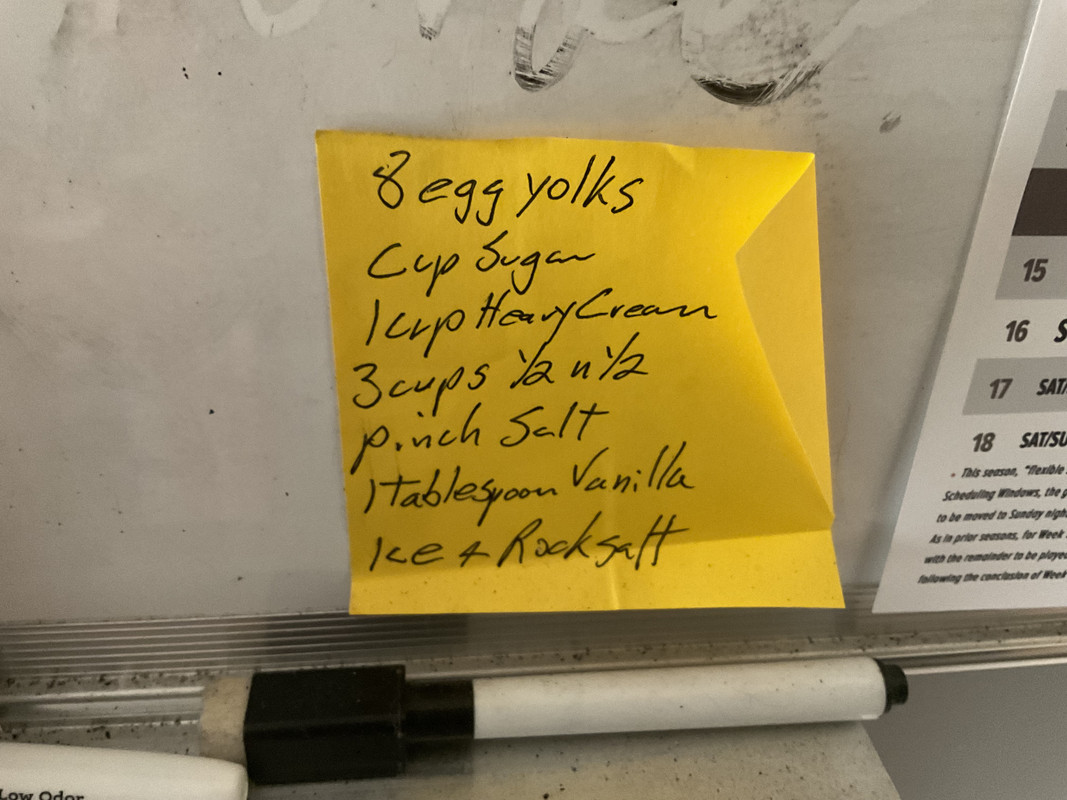 8 egg yolks
Cup Sugar
1 cup Heavy Cream
3 cups 1/2 n 1/2
pinch Salt
1 Tablespoon Vanilla
Ice + Rock salt
15
16 S
17 SAT/
18 SAT/SU
This season, "flexible
Scheduling Windows, the p
to be moved to Sunday nigh
As in prior seasons, for Week
with the remainder to be playe
following the conclusion of Week
Low Odor